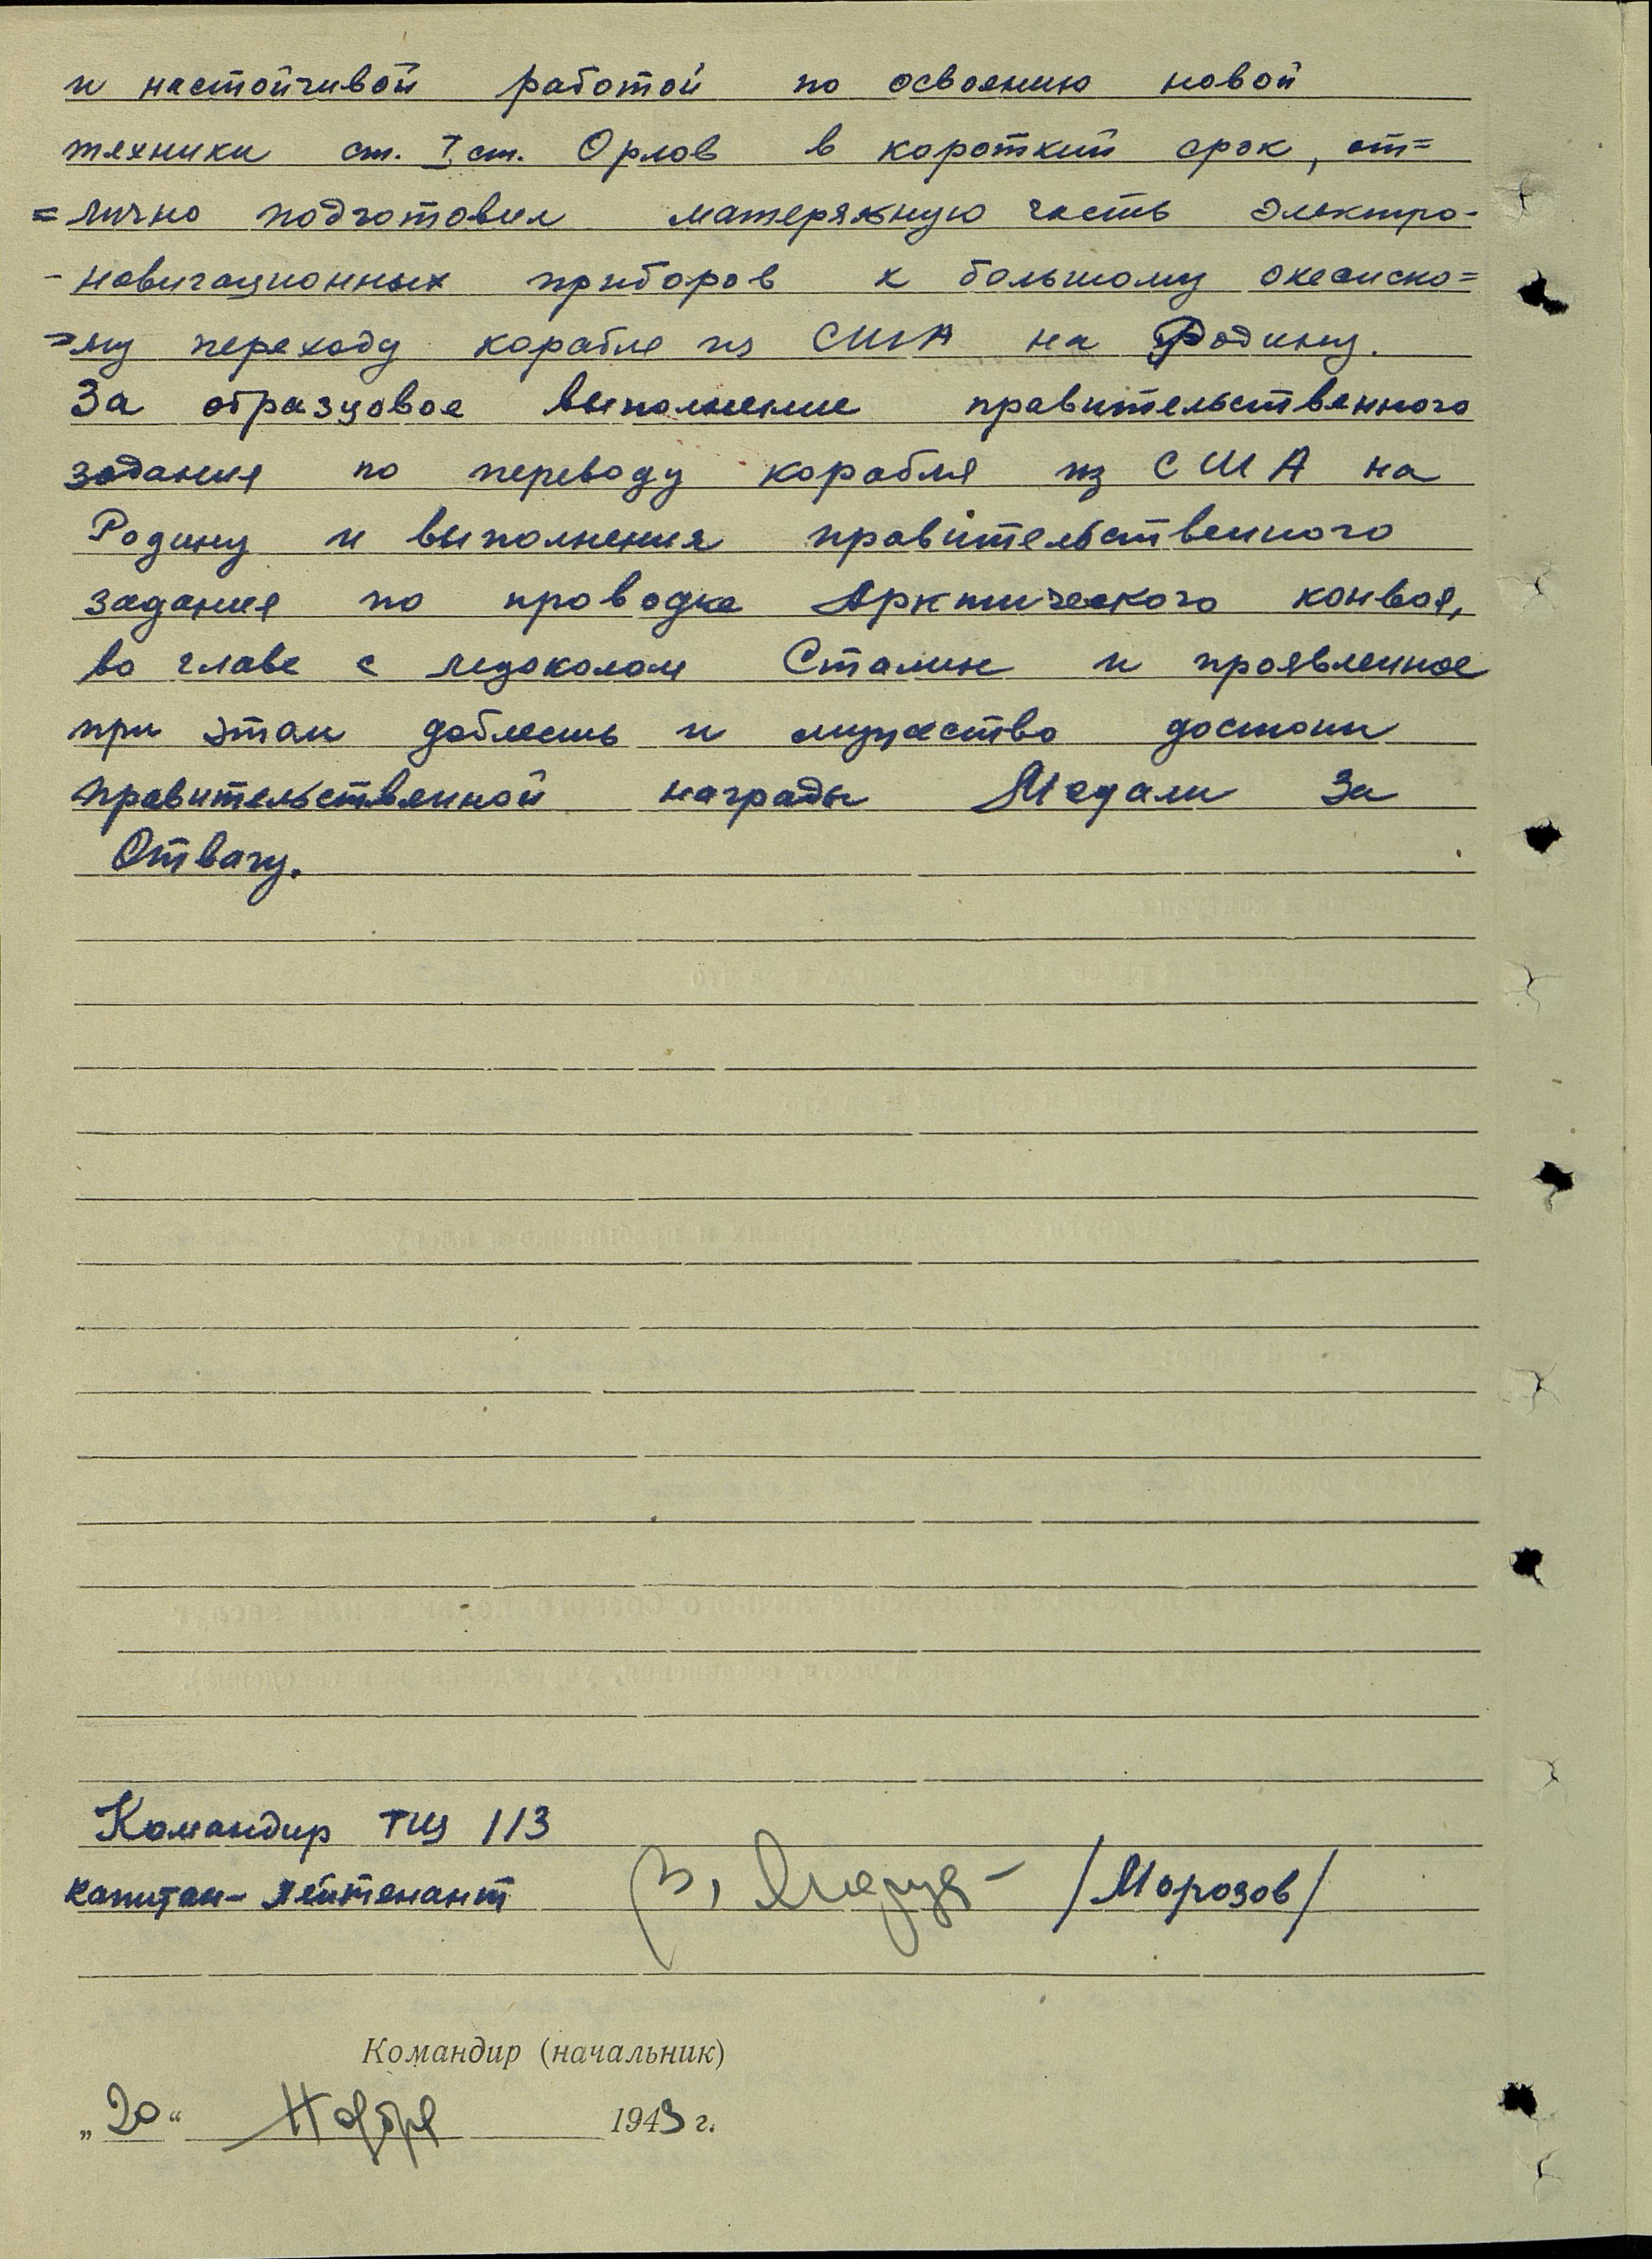 и настойчивой работой по освоению новой
техники ст. I ст. Орлов в короткий срок, от=
=лично подготовил матеряльную часть электро-
-новигационных приборов к большому океанско=
=му переходу корабля из США на Родину.
За образцовое выполнение правительственного
задания по переводу корабля из США на
Родину и выполнения правительственного
задания по проводке Арктического конвоя,
во главе с ледоколом Сталин и проявленное
при этом доблесть и мужество достоин
правительственной награды Медали За
Отвагу.
Командир ТЩ 113
капитан-лейтенант /Морозов/
Командир (начальник)
„20“ Ноября 1943 г.